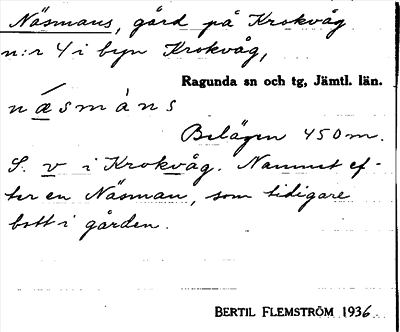 Näsmans, gård på Krokvåg
n:r 4 i byn Krokvåg,
Ragunda sn och tg, Jämtl. län.
næ´smàns
Belägen 450 m.
S. v i Krokvåg. Namnet ef-
ter en Näsman, som tidigare
bott i gården.
BERTIL FLEMSTRÖM 1936